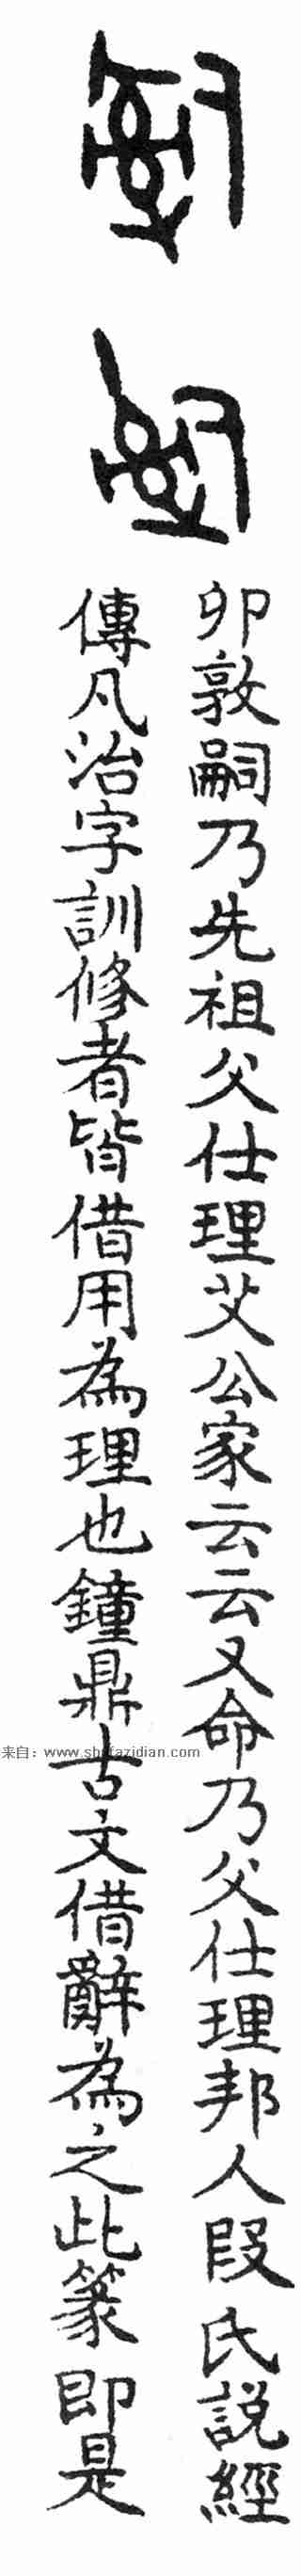 卯敦嗣乃先祖父仕理艾公家云云又命乃父仕理邦人段氏説經
傳凡治字訓修者皆借用為理也鐘鼎古文借辭為之此篆即是
来自：www.shufazidian.com